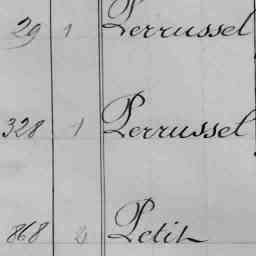 29 1 Perrussel
328 1 Perrussel
868 2 Petit